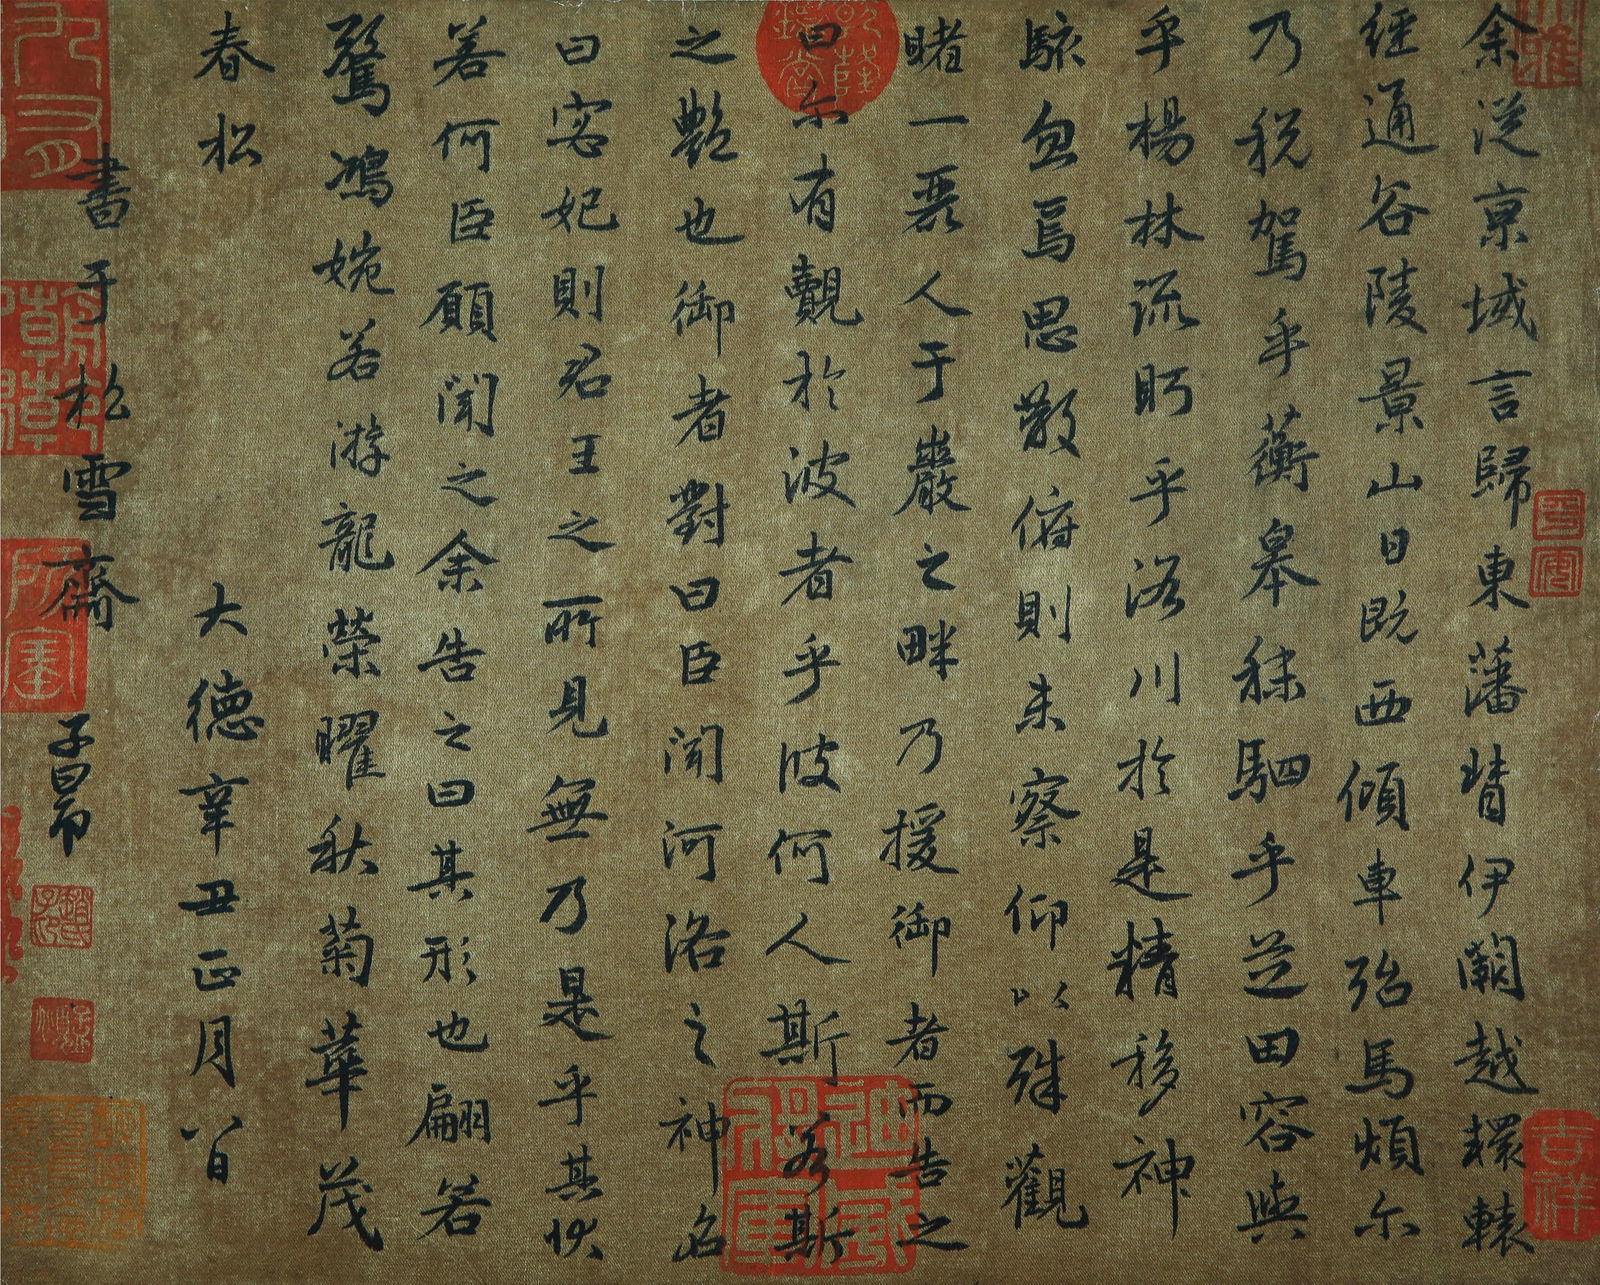 余從京域言歸東藩背伊闕越轘轅
經通谷陵景山日既西傾車殆馬煩尓
乃税駕乎蘅皋秣駟乎芝田容與
乎楊林流眄乎洛川於是精移神
駭忽焉思散俯則未察仰以殊觀
睹一麗人于巖之畔乃援御者而告之
曰尓有覿於彼者乎彼何人斯若斯
之艷也御者對曰臣聞河洛之神名
曰宓妃則君王之所見無乃是乎其狀
若何臣願聞之余告之曰其形也翩若
驚鴻婉若游龍榮曜秋菊華茂
春松
大德辛丑正月八日
書于松雪齋
子昂
吉祥